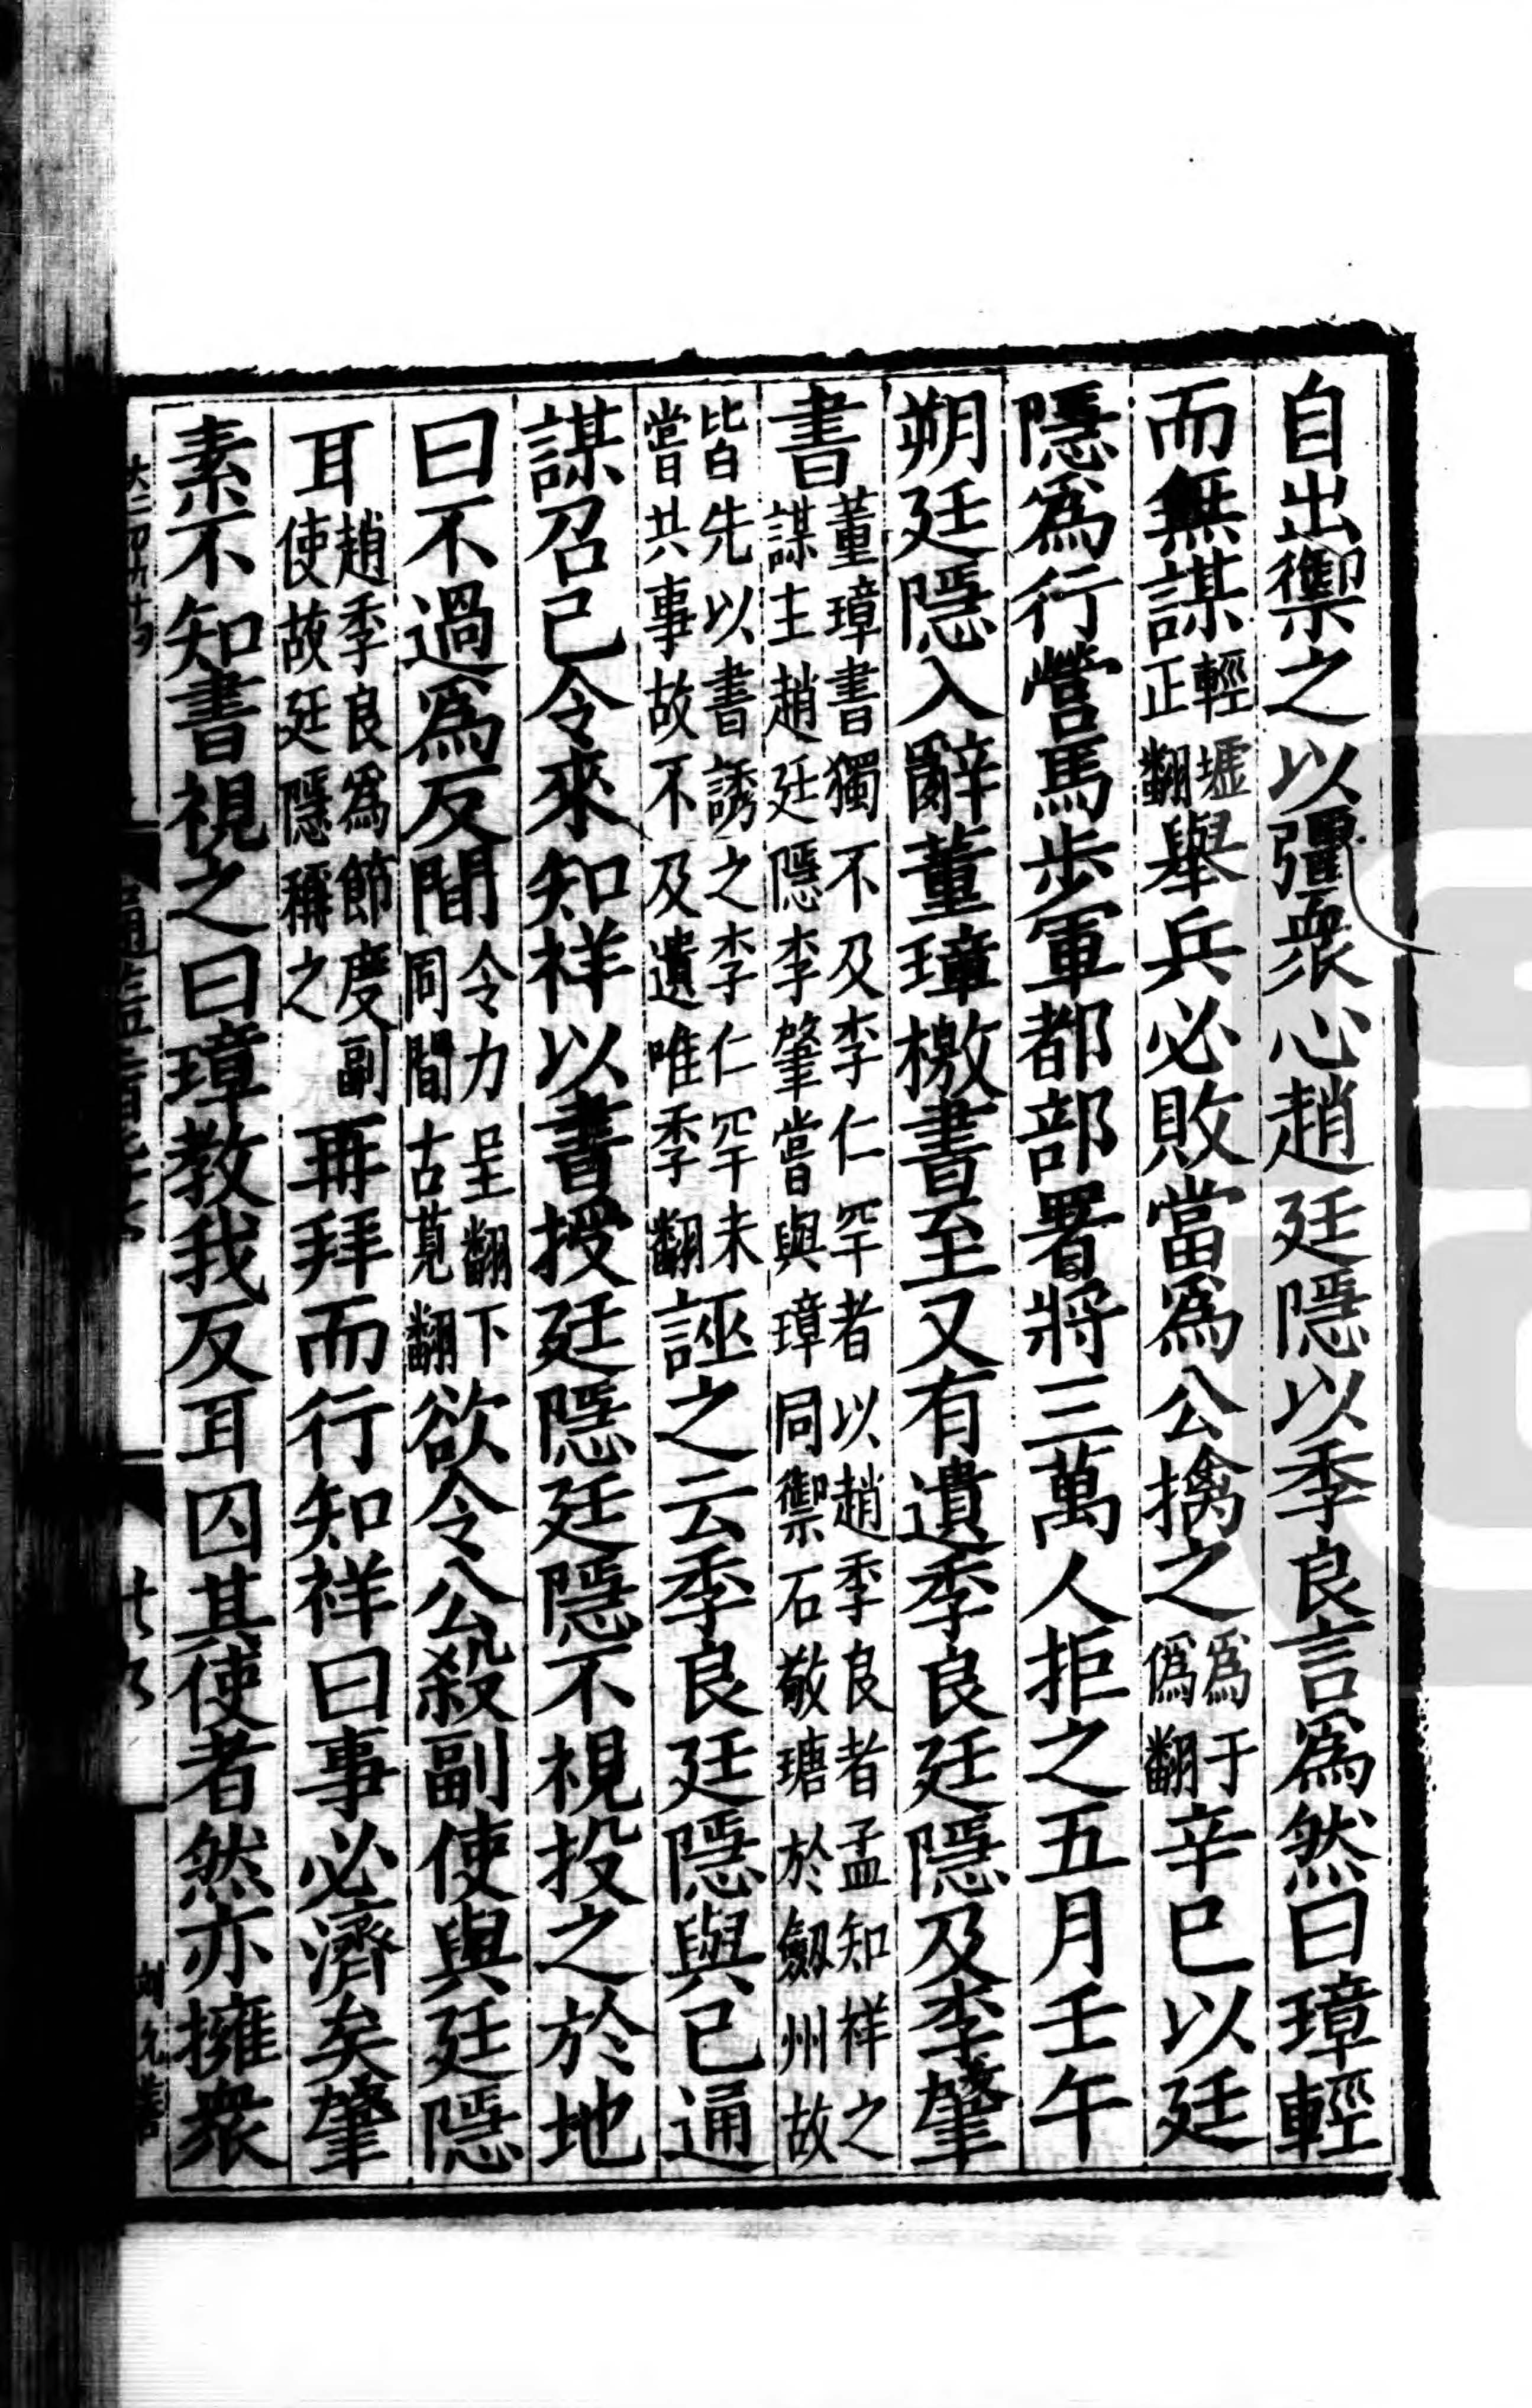 自出禦之以彊衆心趙廷隱以季良言爲然曰璋輕
而無謀輕墟正翻舉兵必敗當爲公擒之爲于僞翻辛巳以廷
隱爲行營馬步軍都部署將三萬人拒之五月壬午
朔廷隱入辭董璋檄書至又有遺季良廷隱及李肇
書董璋書獨不及李仁罕者以趙季良者孟知祥之謀主趙廷隱李肇嘗與璋同禦石敬瑭於劒州故
皆先以書誘之李仁罕未嘗共事故不及遺唯季翻誣之云季良廷隱與己通
謀召己令來知祥以書授廷隱廷隱不視投之於地
曰不過爲反間令力呈翻下同間古莧翻欲令公殺副使與廷隱
耳趙季良爲節度副使故廷隱稱之再拜而行知祥曰事必濟矣肇
素不知書視之曰璋教我反耳囚其使者然亦擁衆